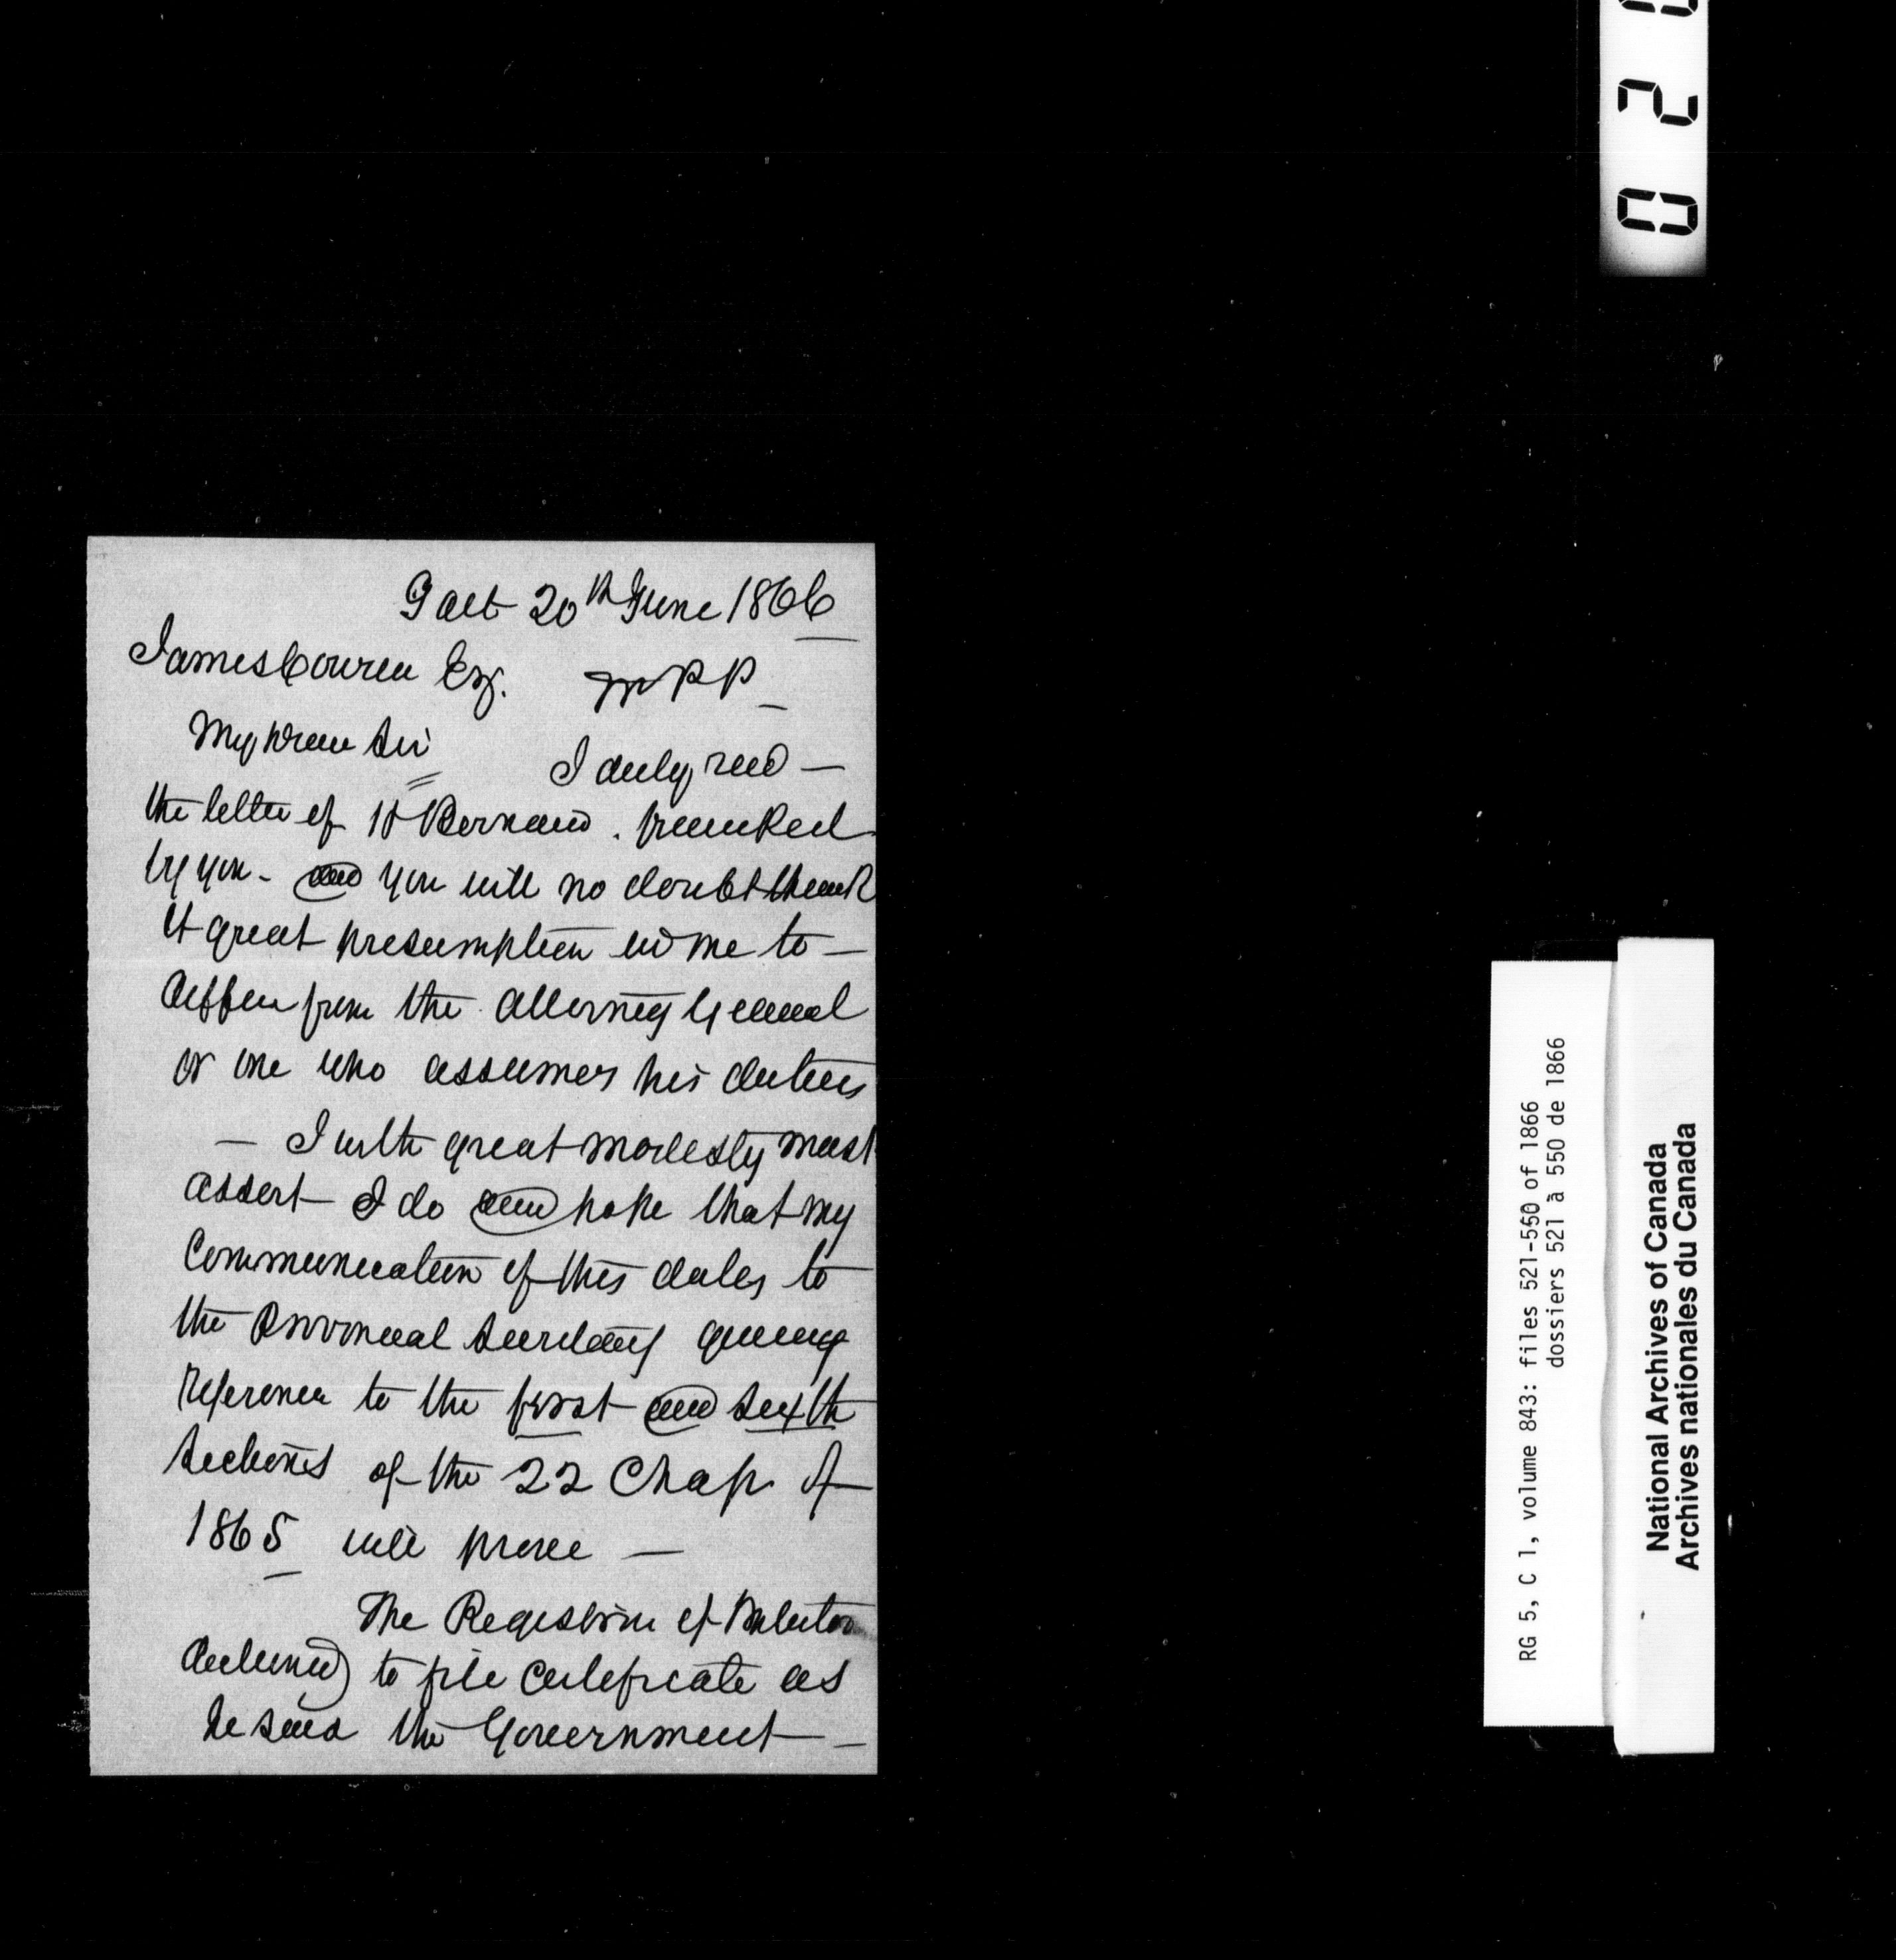 Galt 20th June 1866
James Cowan Esq. MPP
My Dear Sir
I duly recd
the letter of H Bernard. franked
by you - and you will no doubt think
it great presumption in me to
differ from the Attorney General
or one who assumes his duties
— I with great modesty must
assert I do and hope that my
Communication of this date to
the Provincial Secretary giving
reference to the first and sixth
Sections of the 22 Chap of
1865 will prove —
The Registrar of
declined to file certificate as
he said the Government —
0 2
RG 5, C 1, volume 843: files 521-550 of 1866
dossiers 521 à 550 de 1866
National Archives of Canada
Archives nationales du Canada